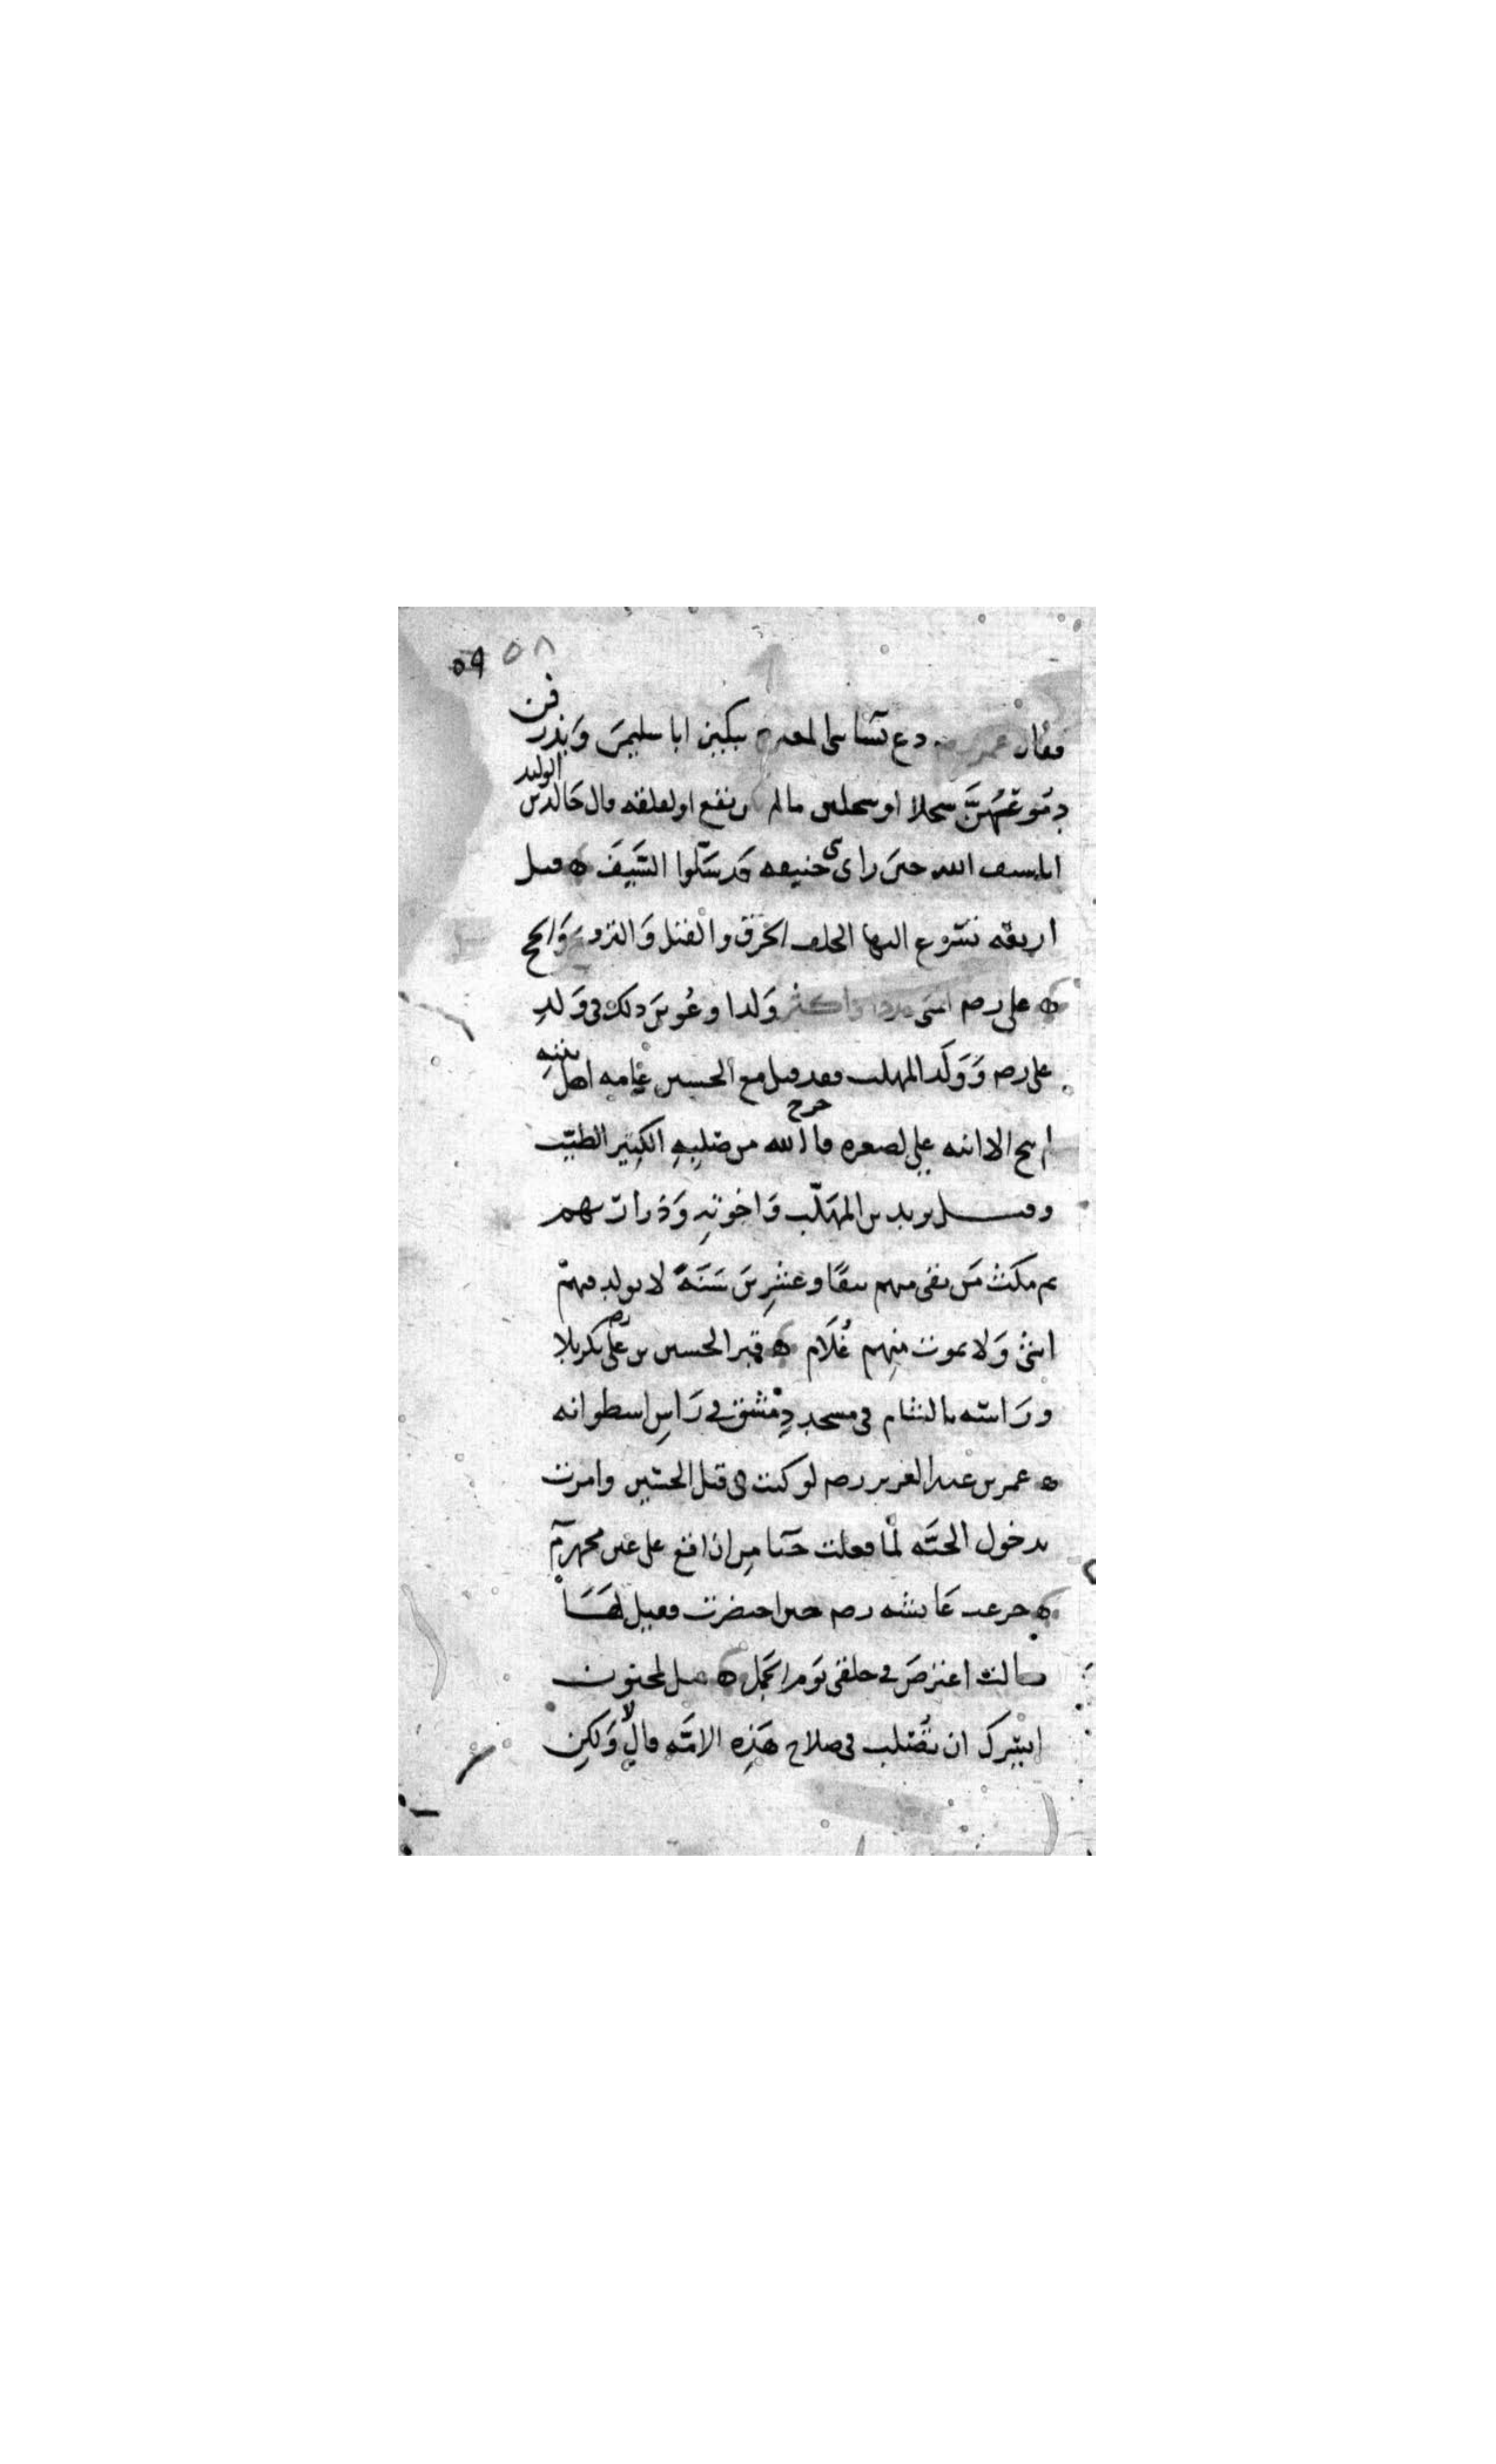 ٥٩ ٥٨
فقال عمر رضه دع نسا بني المغيرة يبكين ابا سليمن ويذرفن
دموعهن سجلا او سجلين ما لم يكن نقع او لقلقه قال خالد بن الوليد
انا سيف الله حين راى بني حنيفه قد سلوا السيف ه قيل
اربعه تسرع اليها الخلف الخرق والقتل والتزوج والحج
ه على رضه انمى عددا واكثر ولدا وعوين ذلك في ولد
على رضه وولد المهلب فقد قتل مع الحسين عامه اهل بيته
لم ينج الا ابنه علي لصغره فاخرج الله من صلبه الكثير الطيب
وقتل يزيد بن المهلب واخوته وذراريهم
ثم مكث من بقى منهم نيفا وعشرين سنة لا يولد فيهم
انثى ولا يموت منهم غلام ه قبر الحسين بن على رضه بكربلا
وراسه بالشام في مسجد دمشق في راس اسطوانه
ه عمر بن عبد العزيز رضه لو كنت في قتل الحسين وامرت
بدخول الجنه لما فعلت حيا من ان اقع على عين محمد
ه جزعت عايشه رضه حين احتضرت فقيل لها
فقالت اعترض في حلقي يوم الجمل ه قيل لمجنون
ايسرك ان تصلب في صلاح هذه الامه قال لا ولكن